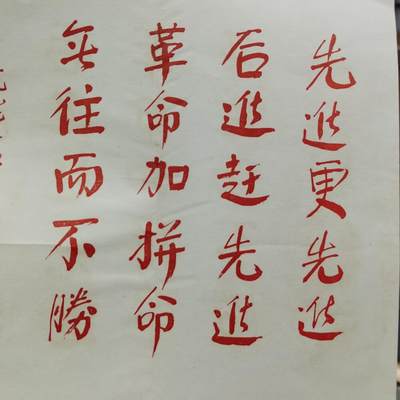 先進更先進
后進赶先進
革命加拼命
無往而不勝